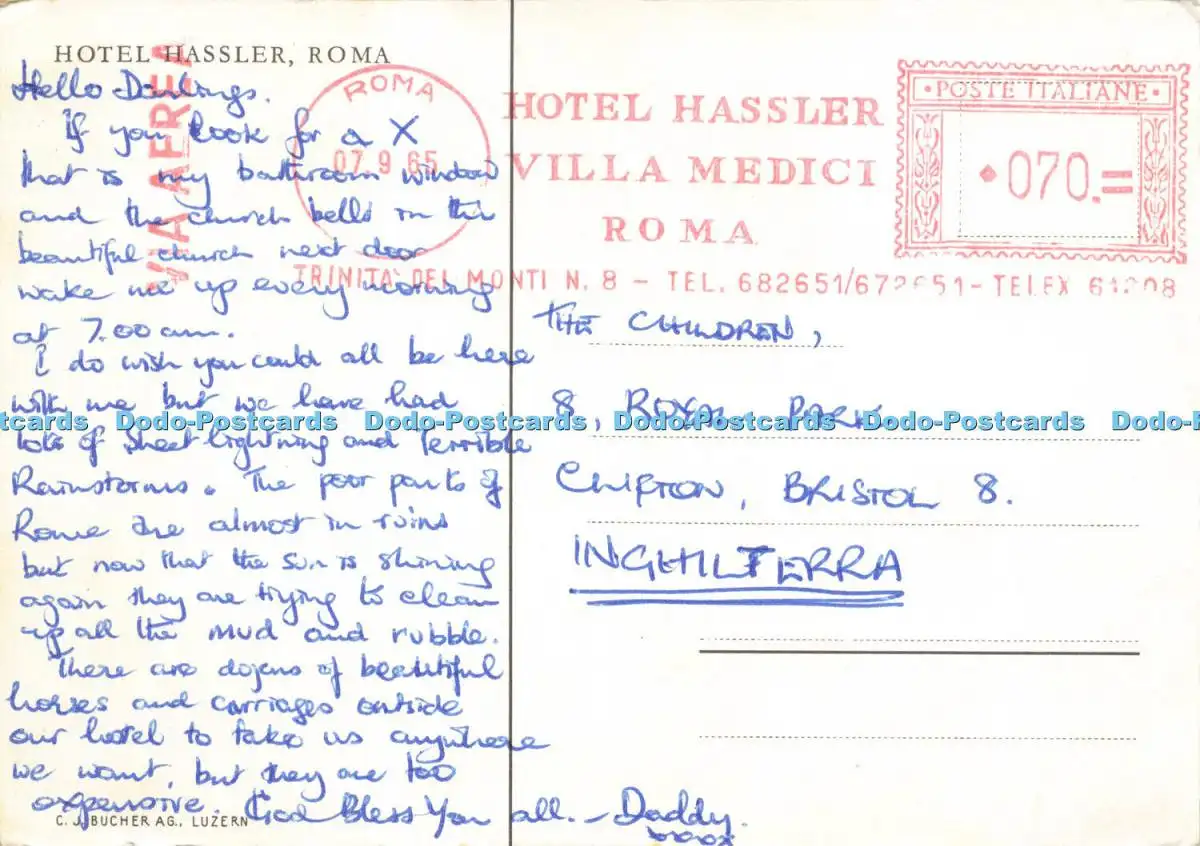 HOTEL HASSLER, ROMA
VIA AEREA
Hello Darlings.
If you look for a X
that is my bathroom window
and the church bells in the
beautiful church next door
wake me up every morning
at 7.00 am.
I do wish you could all be here
with me but we have had
lots of sheet lightning and terrible
Rainstorms. The poor parts of
Rome are almost in ruins
but now that the sun is shining
again they are trying to clean
up all the mud and rubble.
There are dozens of beautiful
horses and carriages outside
our hotel to take us anywhere
we want, but they are too
expensive. God Bless You all. - Daddy.
xxxx
C. J. BUCHER AG., LUZERN
ROMA
07.9.65
HOTEL HASSLER
VILLA MEDICI
ROMA
TRINITA' DEI MONTI N. 8 - TEL. 682651/672651 - TELEX 61208
· POSTE ITALIANE ·
070.=
THE CHILDREN,
8, ROYAL PARK,
CLIFTON, BRISTOL 8.
INGHILTERRA
Postcards Dodo-Postcards Dodo-Postcards Dodo-Postcards Dodo-Postcards Dodo-P